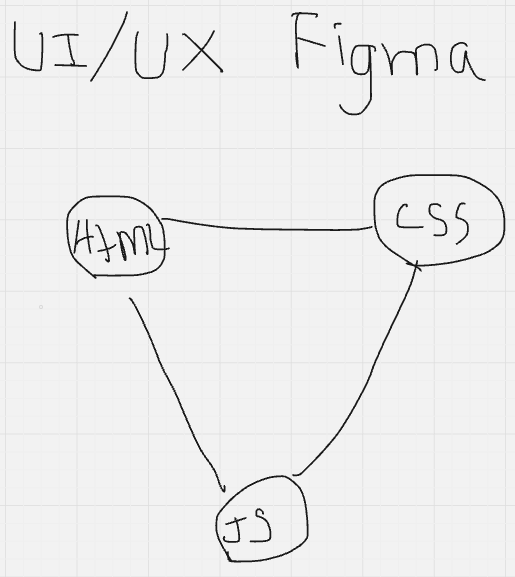 UI/UX Figma
HTML
CSS
JS